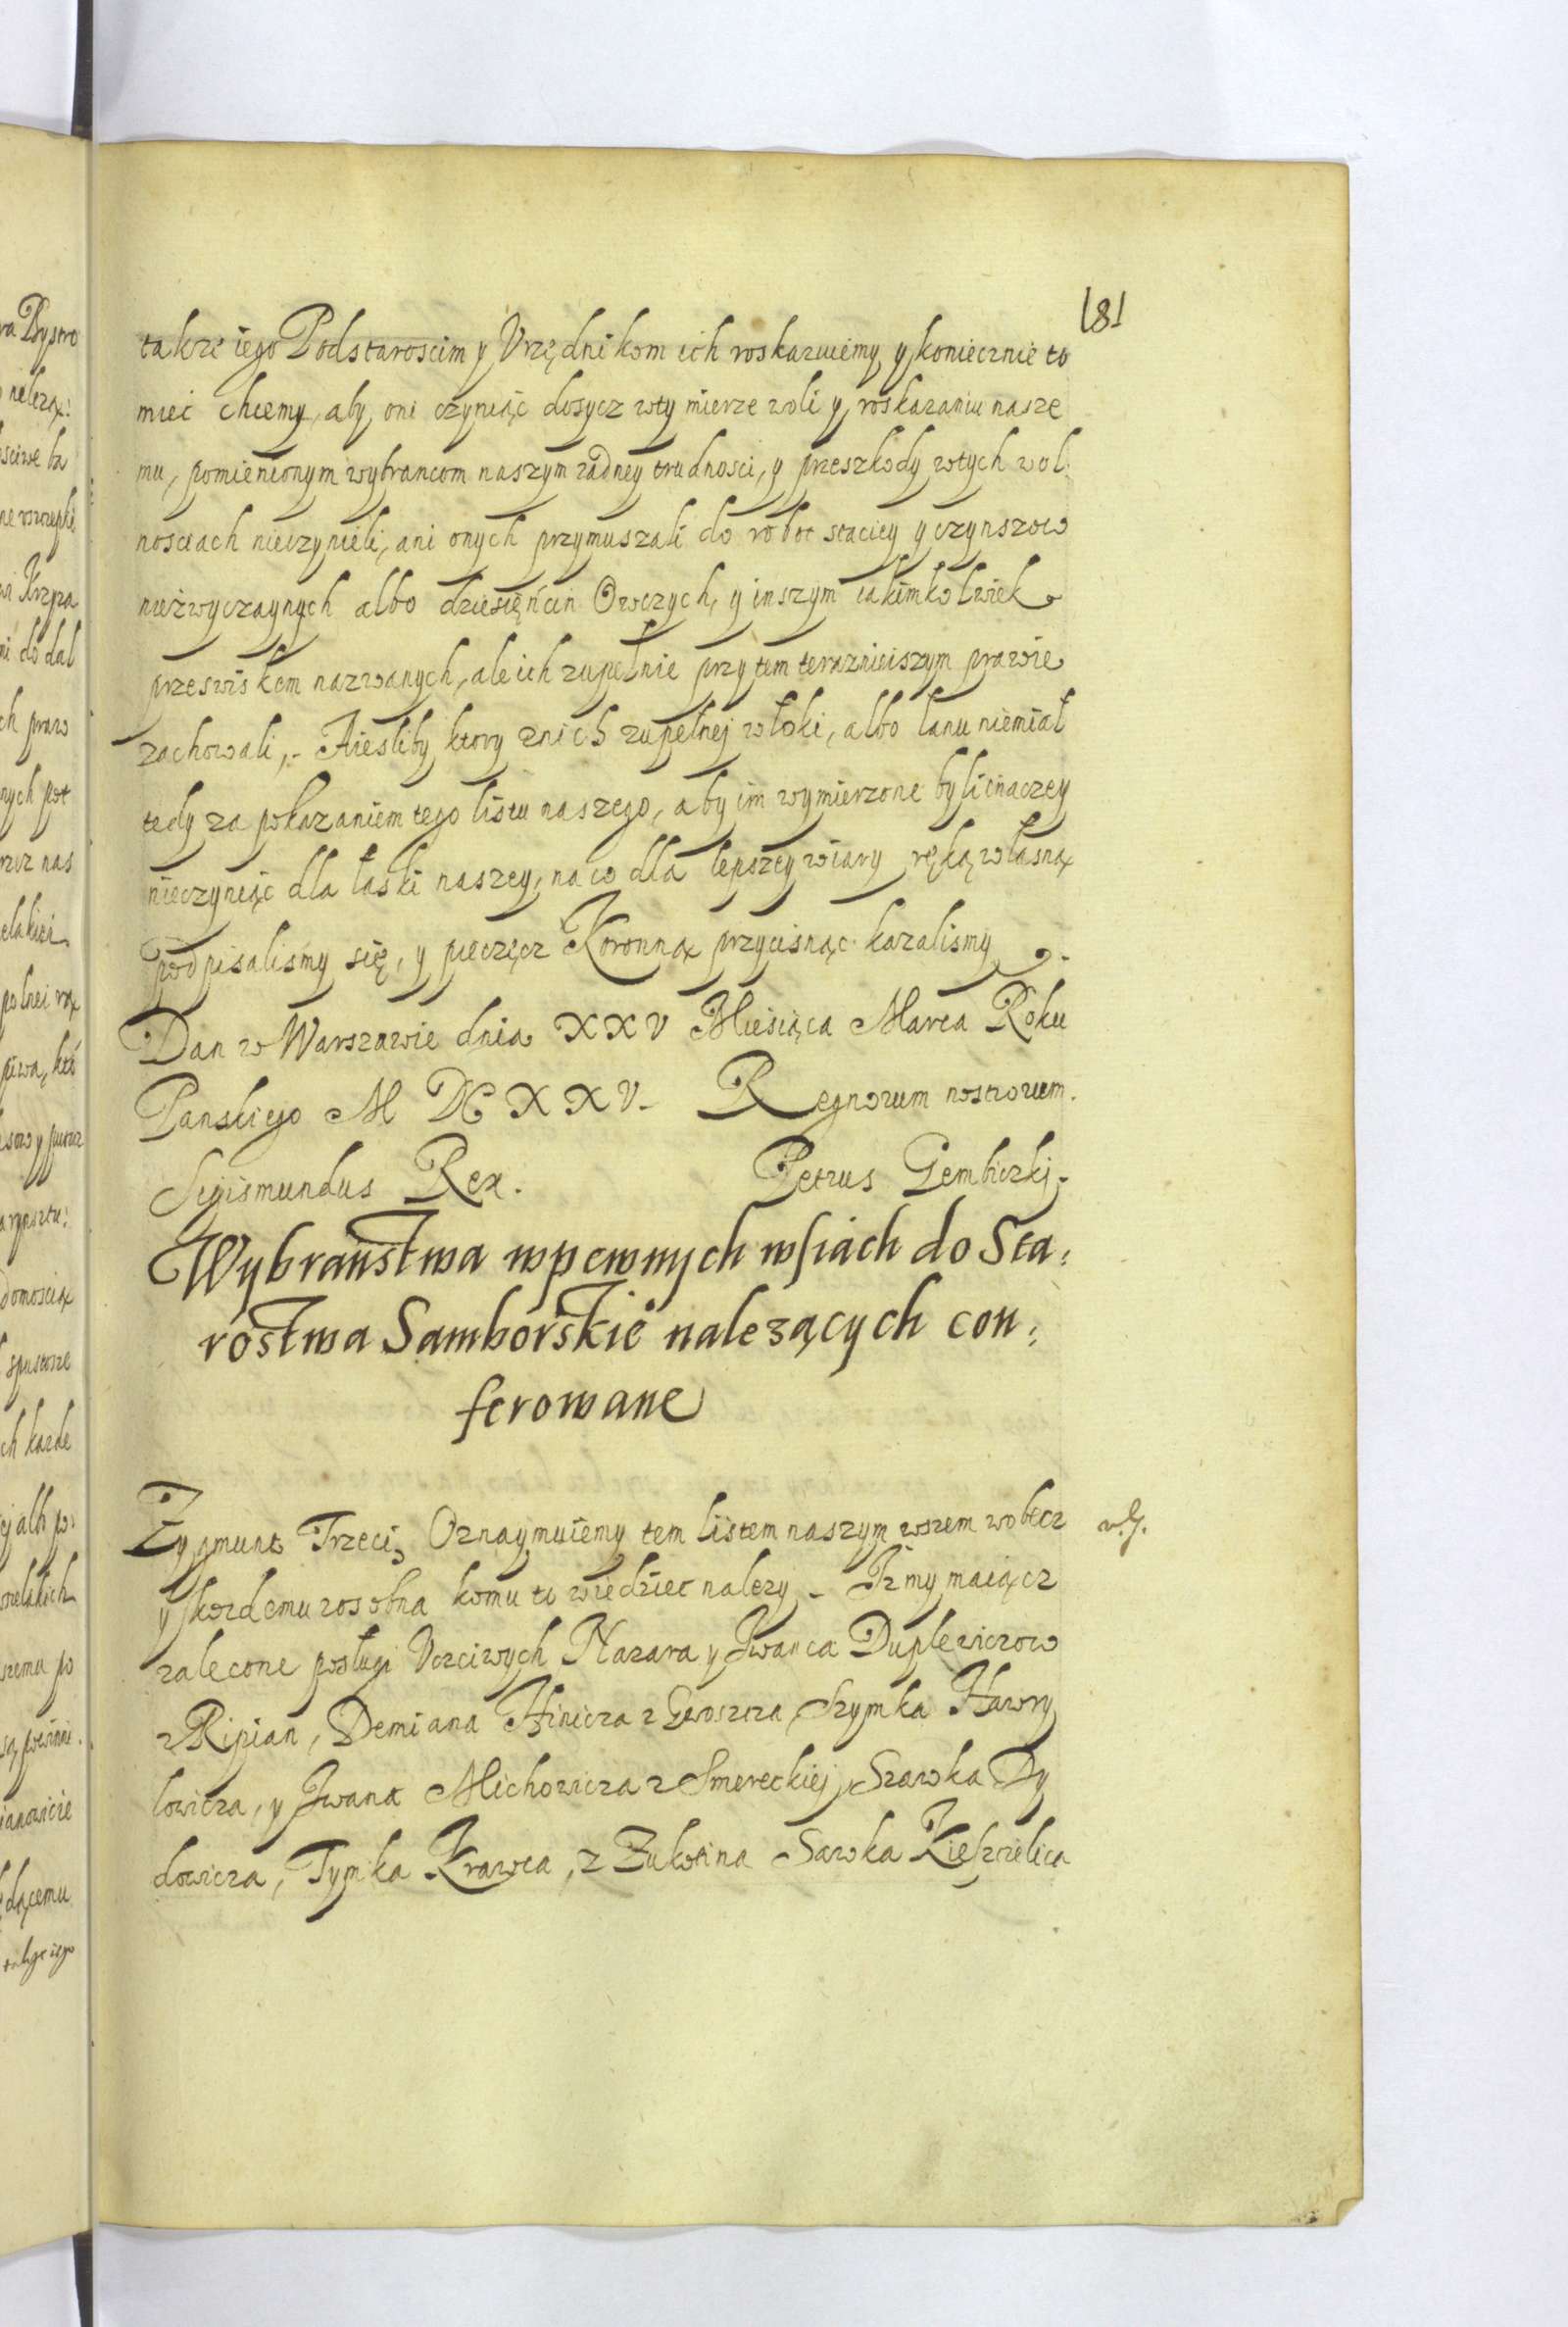 181
takze iego Podstaroscim y Vrzędnikom ich roskazuiemy, y koniecznie to
miec chcemy, aby oni czyniąc dosycz wty mierze woli y roskazaniu nasze
mu, pomienionym wybrancom naszym zadney trudnosci, y przeszkody wtych wol
nosciach nieczynieli, ani onych przymuszali do robot staciey y czynszow
niezwyczaynych albo dziesięńcin Owczych, y inszym iakimkolwiek
przeswiskem nazwanych, ale ich zupełnie przy tem teraznieiszym prawie
zachowali, - A iesliby ktory znich zupełnej włoki, albo lanu niemiał
tedy za pokazaniem tego listu naszego, aby im wymierzone byli inaczey
nieczyniąc dla łaski naszey, na co dla lepszey wiary ręką własną
podpisalismy się, y pieczęcz Koronną przycisnąc kazalismy.
Dan w Warszawie dnia XXV Miesiąca Marca Roku
Panskiego M DC XXV - Regnorum nostrorum.
Sigismundus Rex. Petrus Gembiczkj.
Wybraństwa wpewnych wsiach do Sta:
rostwa Samborskie nalezących con:
ferowane
Zygmunt Trzeci, Oznaymuiemy tem listem naszym wszem wobecz
y kozdemu zosobna komu to wiedziec nalezy - Iz my maiącz
zalecone posługi Vczciwych Nazara y Iwanca Duplewiczow
z Ripian, Demiana Hinicza z Gwoszcza, Szymka Hawry
lowicza, y Iwana Michowicza z Smereckiej, Szawka Dy
dowicza, Tymka Krawca, z Zukotina Sawka